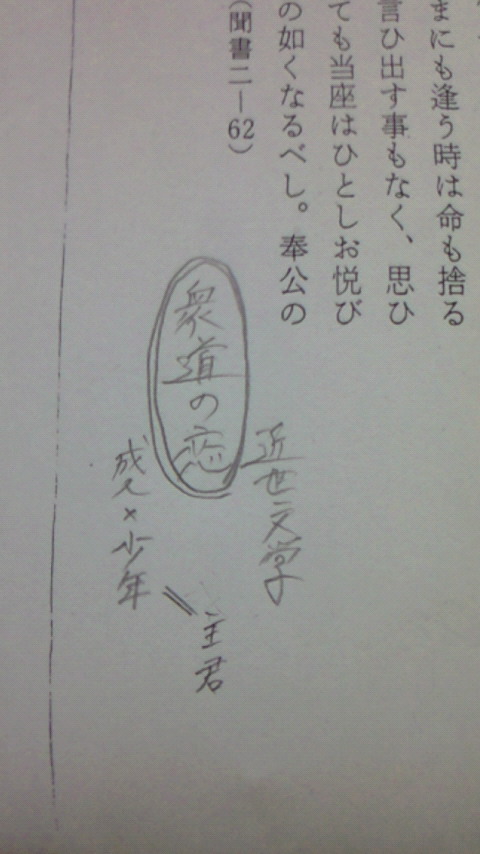 まにも逢う時は命も捨る
言ひ出す事もなく、思ひ
ても当座はひとしお悦び
の如くなるべし。奉公の
(聞書二―62)
衆道の恋
近世文学
成人×少年
主君